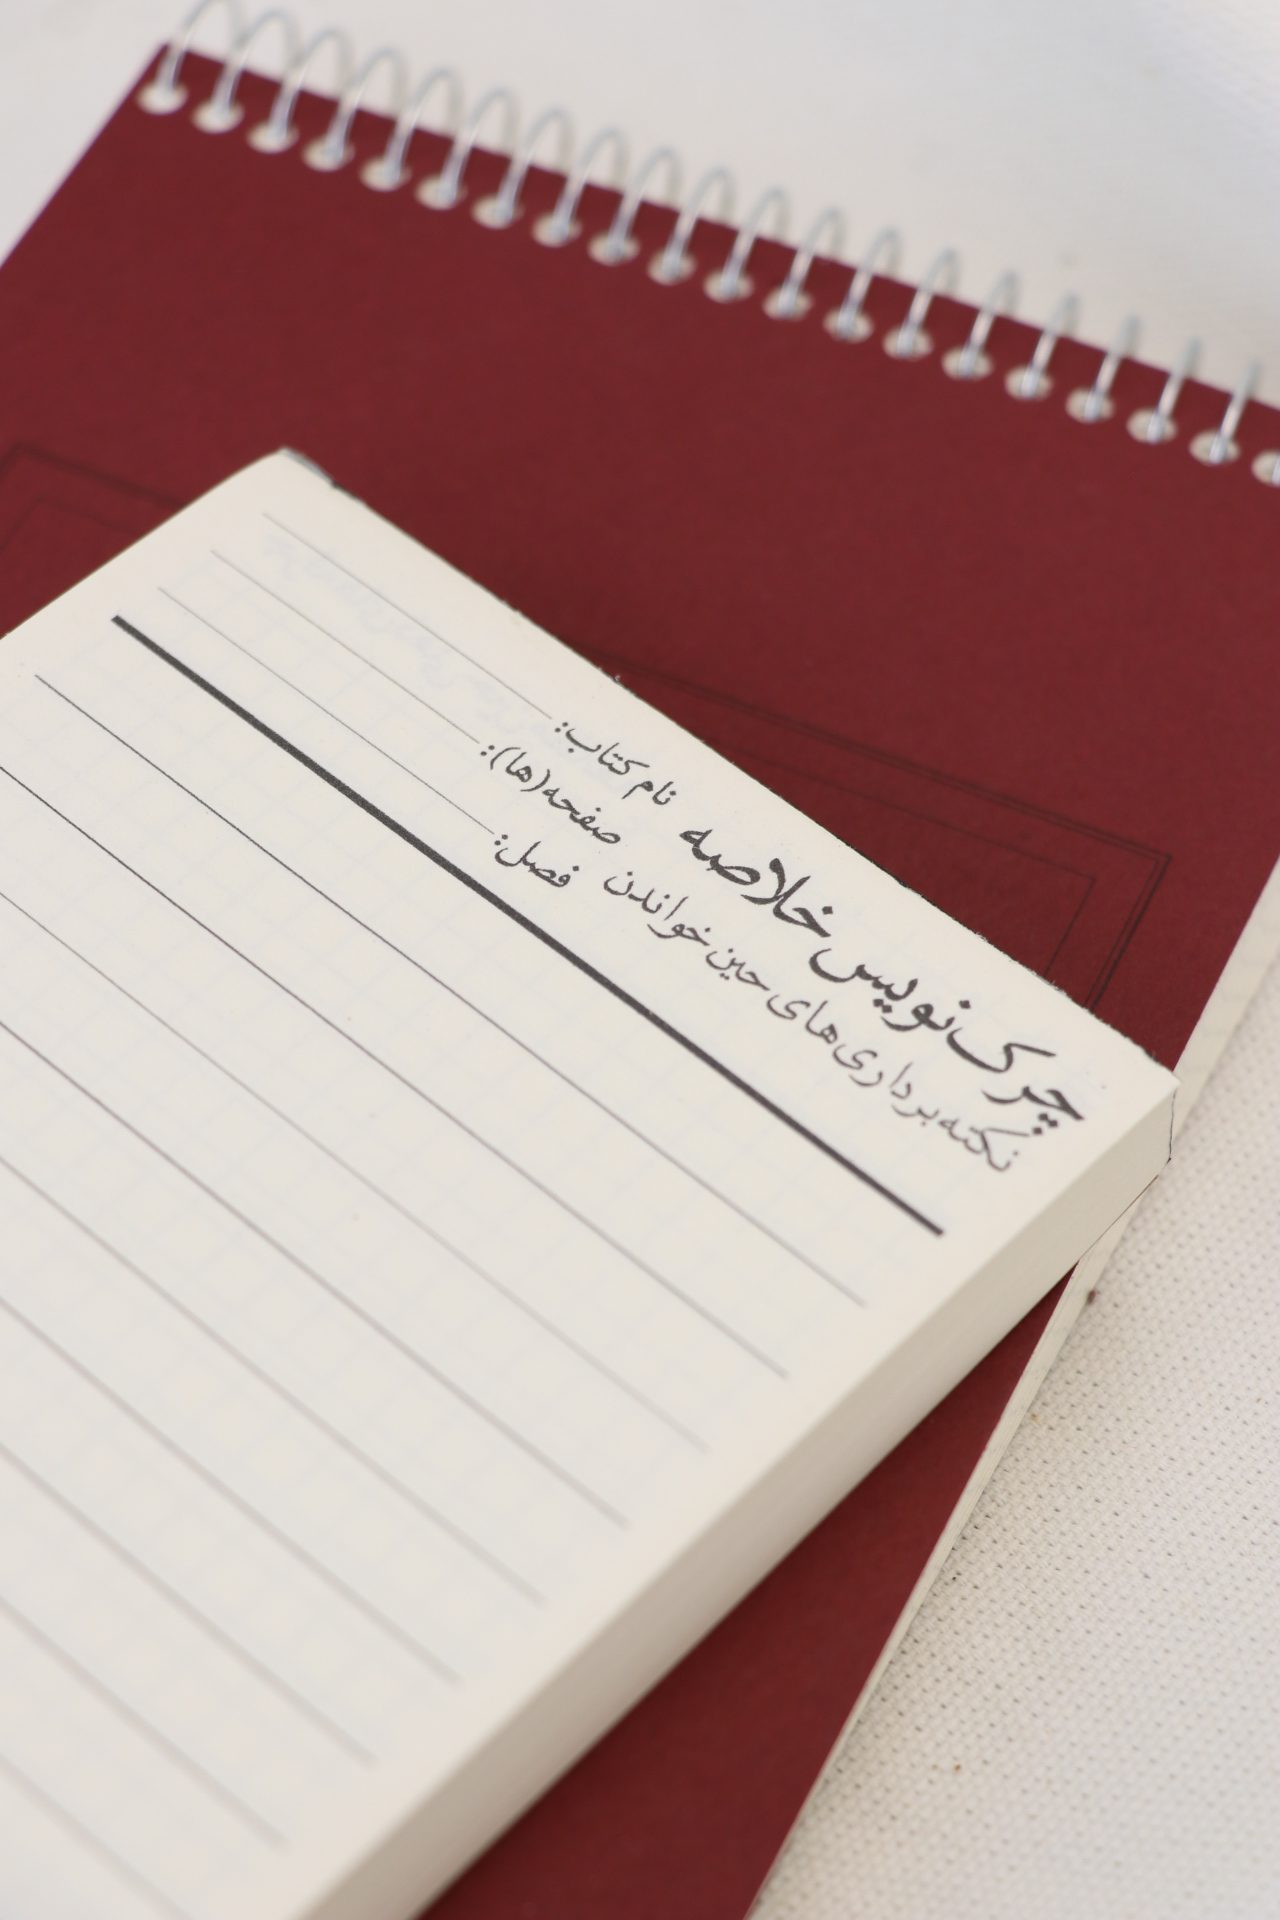 چرک‌نویس خلاصه
نکته‌برداری‌های حین خواندن
نام کتاب:
صفحه(ها):
فصل: